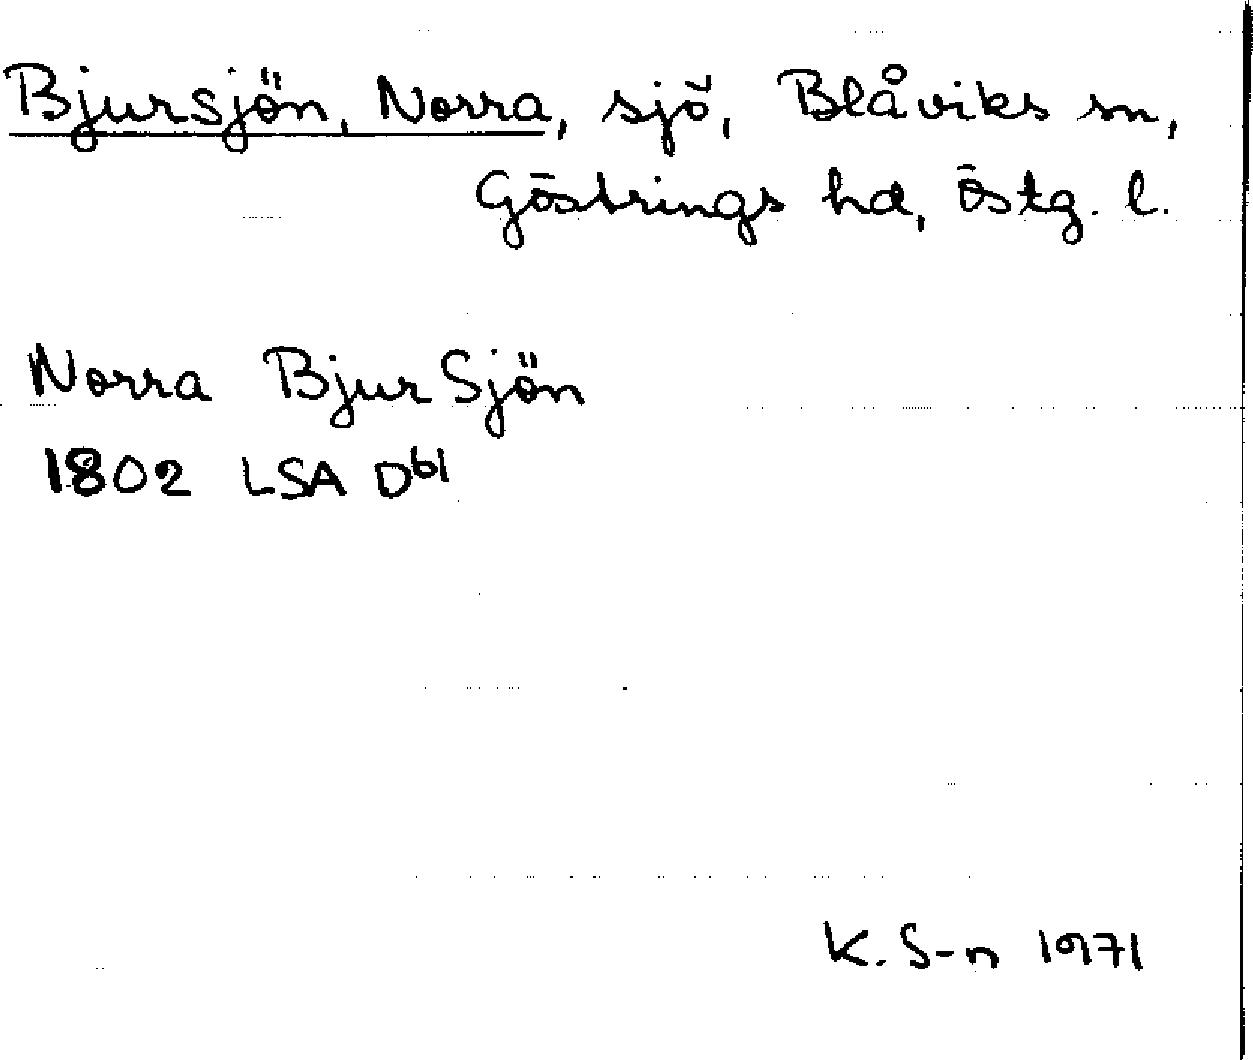 Bjursjön, Norra, sjö, Blåviks sn,
Göstrings hd, Östg. l.
Norra BjurSjön
1802 LSA D61
K. S-n 1971